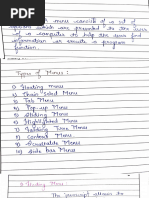 menu consists of a set of
options which are presented to the user
of a computer to help the user find
information or execute a program
function
Types of Menus :
1) Floating menu
2) Chain Select Menu
3) Tab Menu
4) Pop-up Menu
5) Sliding Menu
6) Highlighted Menu
7) Folding Tree Menu
8) Context Menu
9) Scrollable Menu
10) Side bar Menu
Floating Menu :
The javascript allows the